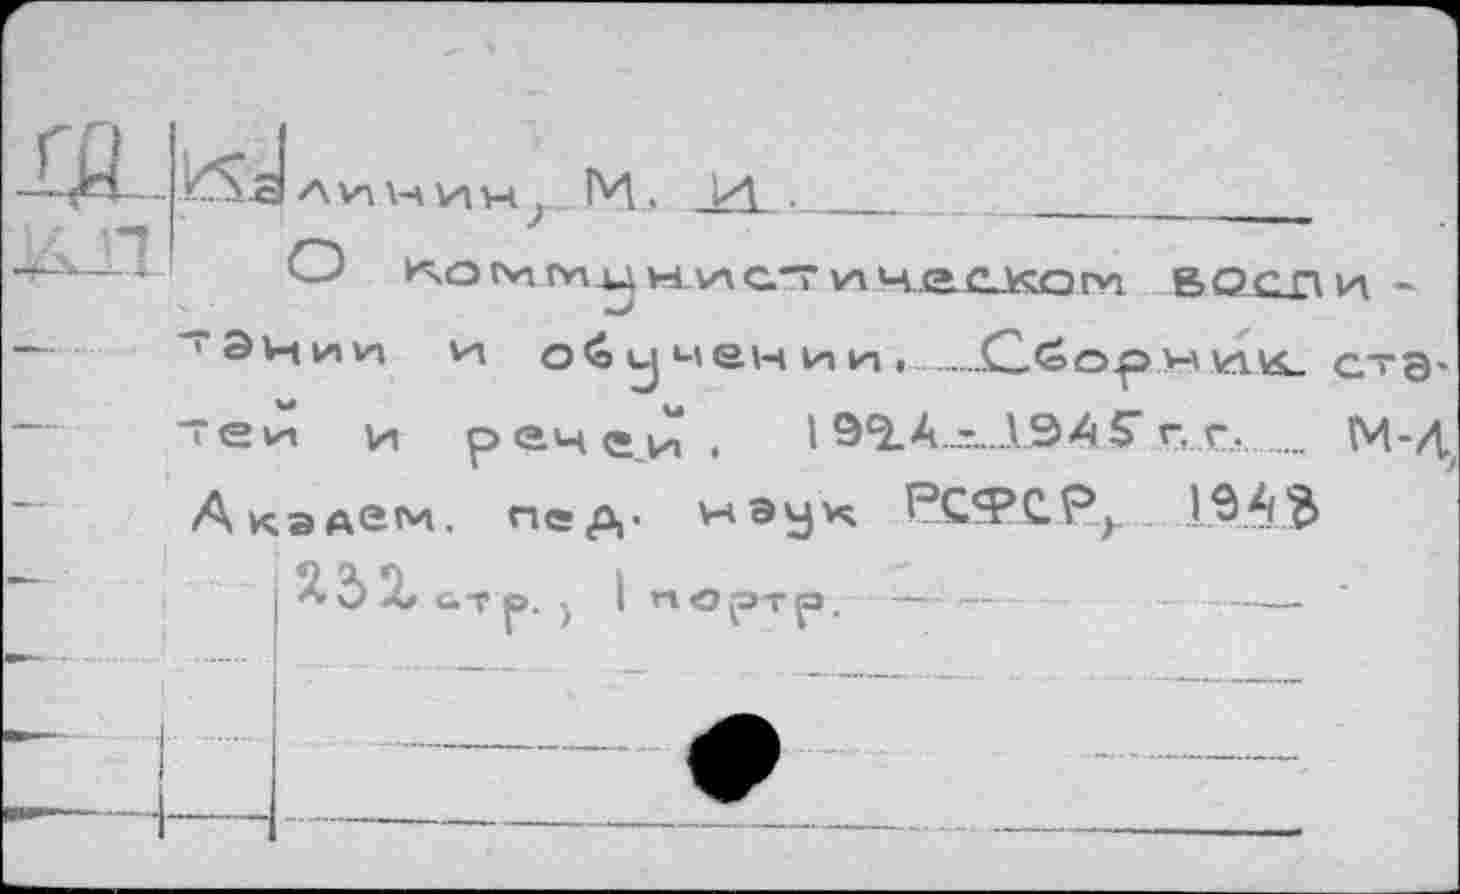 Калинин, М. И.
КП О коммунистическом воспи-
тании и обучении. Сборник ста-
тей и речей. 1924-1945 г.г. М-Л,
Академ. пед. наук РСФСР, 1948
232 стр., 1 портр.